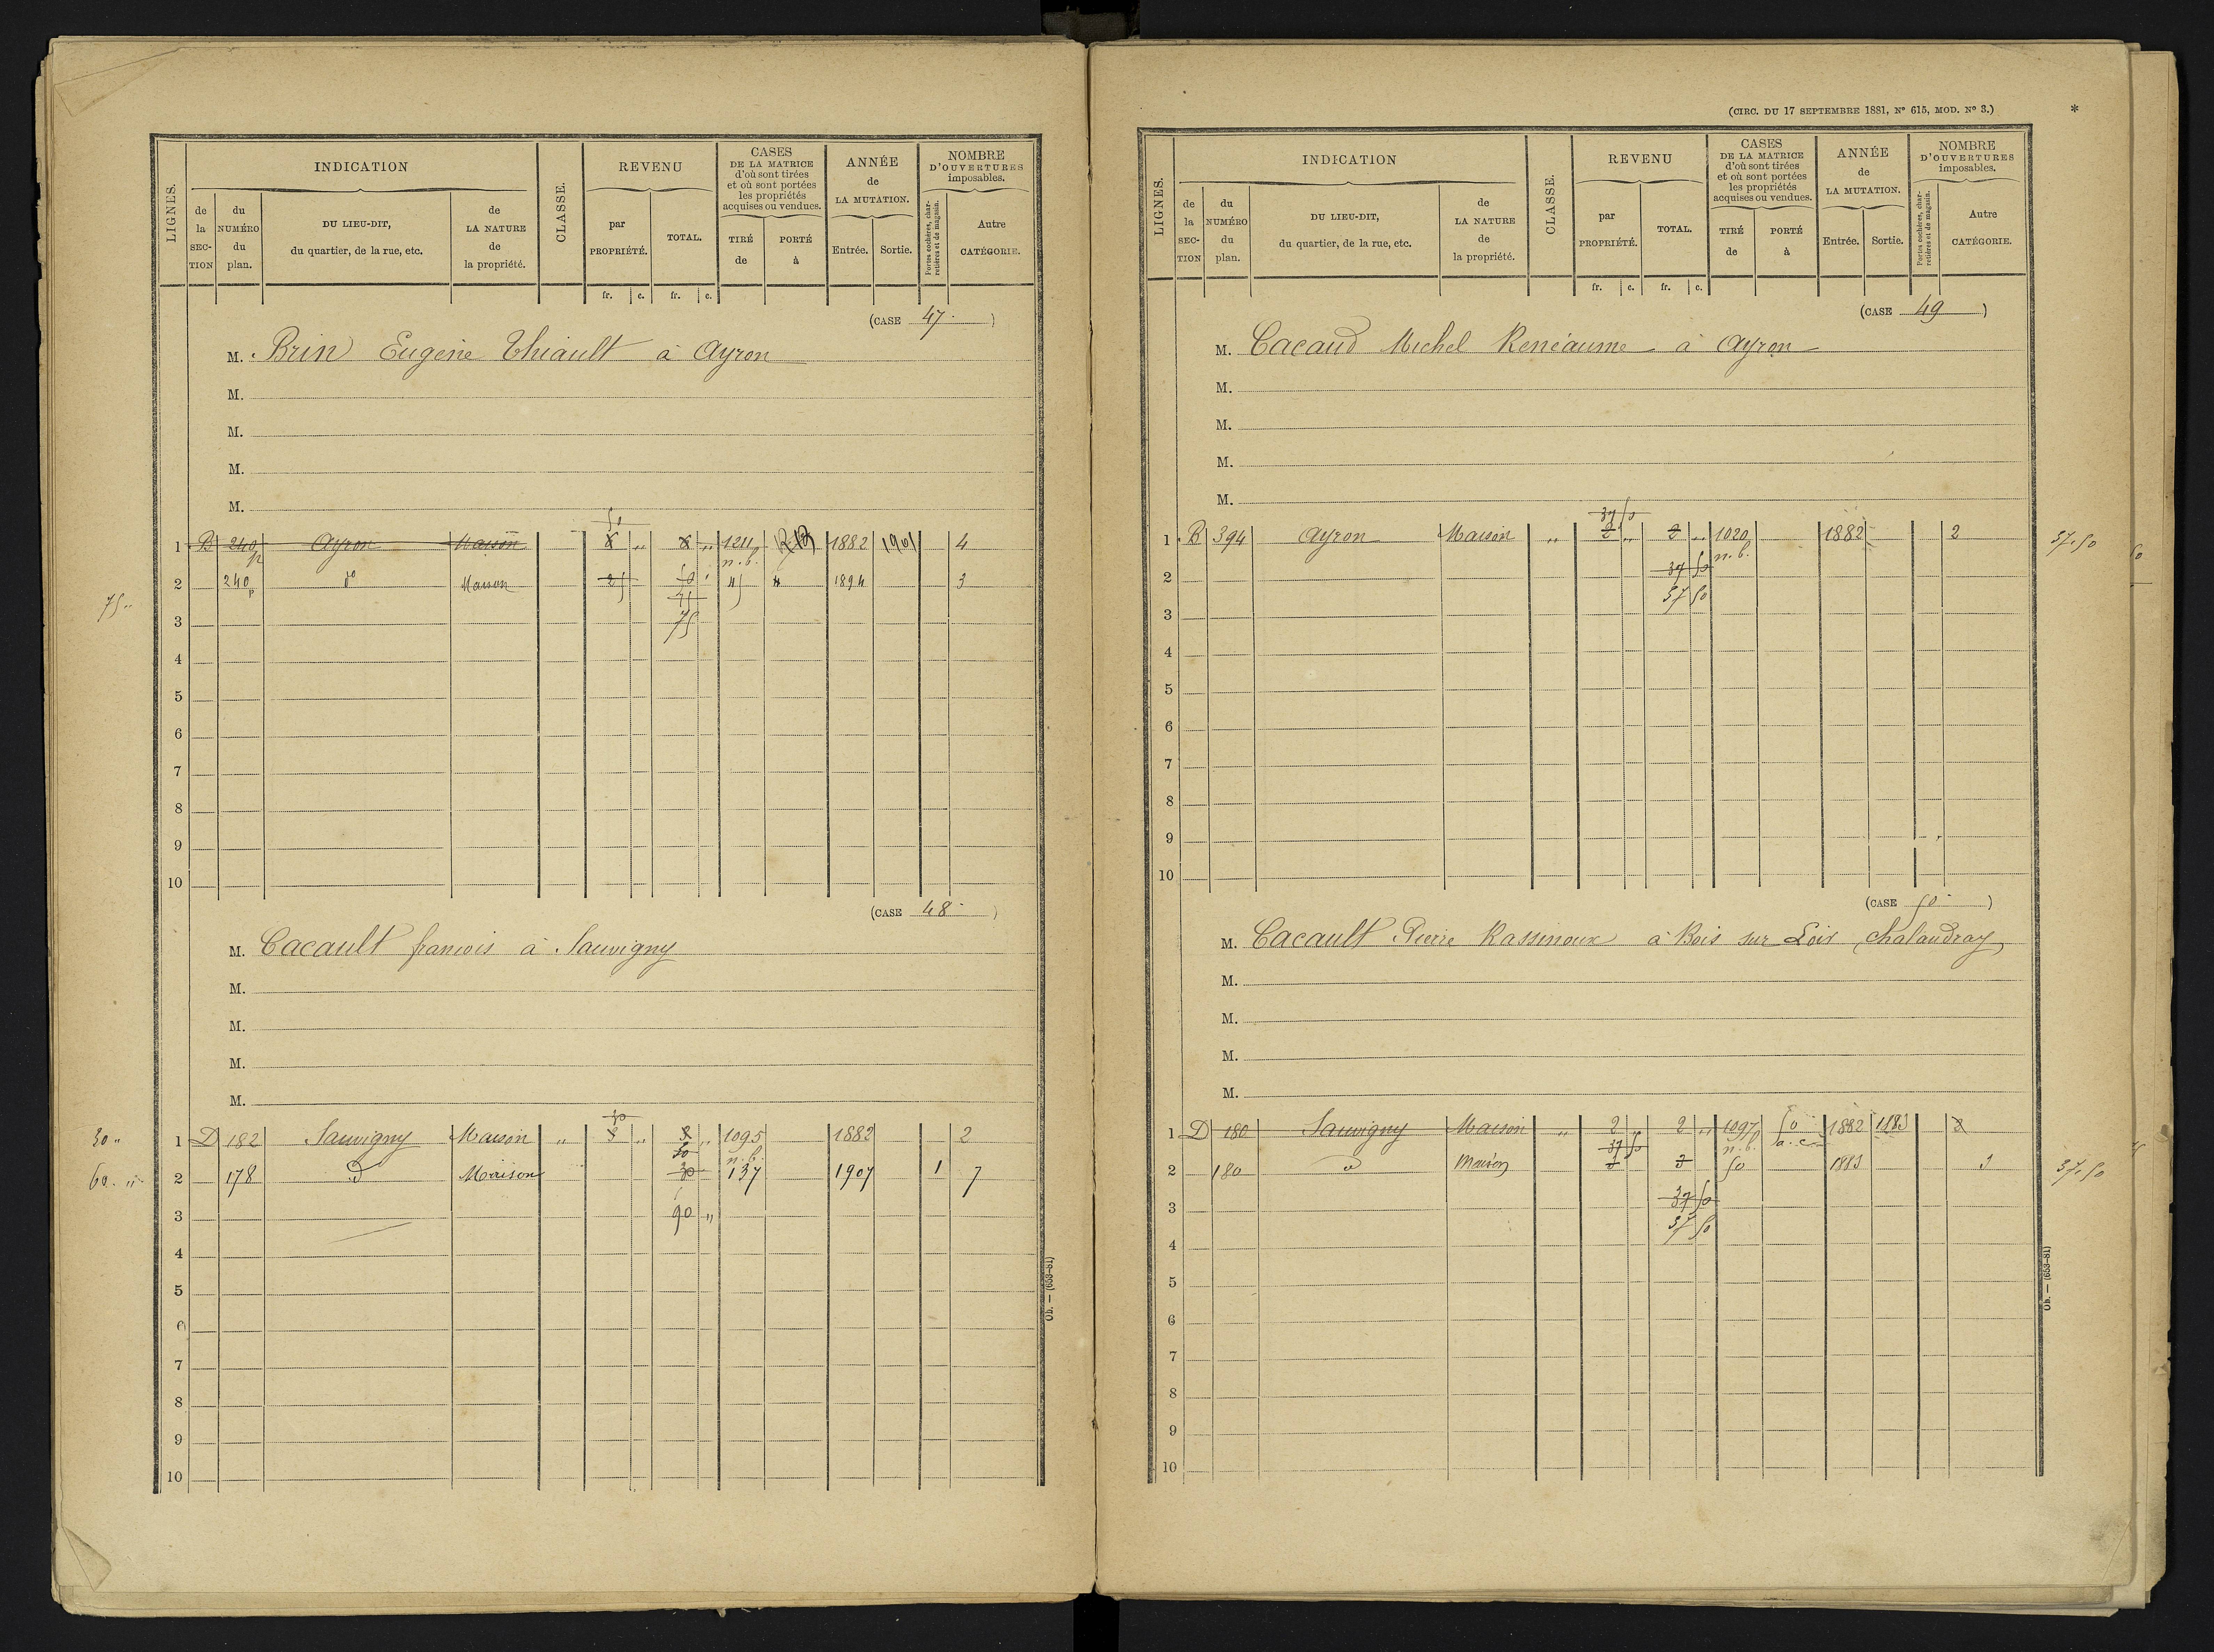 LIGNES.
INDICATION
de la SECTION
du NUMÉRO du plan.
DU LIEU-DIT, du quartier, de la rue, etc.
de LA NATURE de la propriété.
CLASSE.
REVENU
par PROPRIÉTÉ.
TOTAL.
CASES DE LA MATRICE d'où sont tirées et où sont portées les propriétés acquises ou vendues.
TIRÉ de
PORTÉ à
ANNÉE de LA MUTATION.
Entrée.
Sortie.
NOMBRE D'OUVERTURES imposables.
Portes cochères, charretières et de magasin.
Autre CATÉGORIE.
fr. c. fr. c.
(CASE 47.)
M. Brin Eugène Thiault à Ayron
M.
M.
M.
M.
50
1 B 240p Ayron Maison 8 „ 8 „ 1211 1882 1901 4
n.b.
2 240p do Maison 25 50 45 1894 3
75 „
3 75
4
5
6
7
8
9
10
(CASE 48)
M. Cacault francois à Sauvigny
M.
M.
M.
M.
30
30 „ 1 D 182 Sauvigny Maison „ 8 „ 8 „ 1095 1882 2
30 n.b.
60 „ 2 178 d Maison 30 137 1907 1 7
3 90 „
4
5
6
7
8
9
10
Ob. — (653-81)
(CIRC. DU 17 SEPTEMBRE 1881, No 615, MOD. No 3.) *
LIGNES.
INDICATION
de la SECTION
du NUMÉRO du plan.
DU LIEU-DIT, du quartier, de la rue, etc.
de LA NATURE de la propriété.
CLASSE.
REVENU
par PROPRIÉTÉ.
TOTAL.
CASES DE LA MATRICE d'où sont tirées et où sont portées les propriétés acquises ou vendues.
TIRÉ de
PORTÉ à
ANNÉE de LA MUTATION.
Entrée.
Sortie.
NOMBRE D'OUVERTURES imposables.
Portes cochères, charretières et de magasin.
Autre CATÉGORIE.
fr. c. fr. c.
(CASE 49)
M. Cacaud Michel Renéaume à Ayron
M.
M.
M.
M.
37 50
1 B 394 Ayron Maison „ 2 „ 2 „ 1020 1882 2 37.50
n.b.
2 37 50
3 37 50
4
5
6
7
8
9
10
(CASE 50)
M. Cacault Pierre Rassinoux à Bois sur Loir chalandray
M.
M.
M.
M.
1 D 180 Sauvigny Maison „ 2 „ 2 „ 1097 50 1882 1883 2
37 50 n.b. a.c.
2 180 d Maison 3 3 50 1883 3 37.50
3 37 50
37 50
4
5
6
7
8
9
10
Ob. — (653-81)